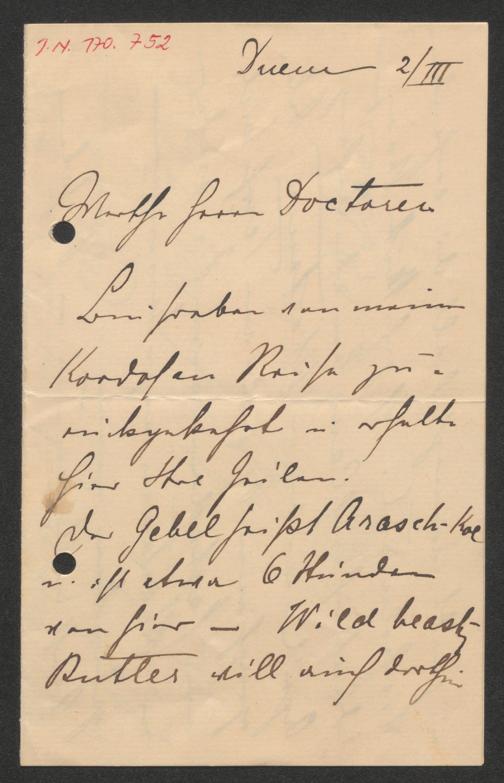 J.N. 170.752
Duem 2/III
Werthe Herren Doctoren
Bin soeben von meiner
Kordofan Reise zu-
rückgekehrt u. erhalte
hier Ihre Zeilen.
Der Gebel heißt Arasch-Kol
u. ist etwa 6 Stunden
von hier – Wild beast-
Butler will auch dorthin